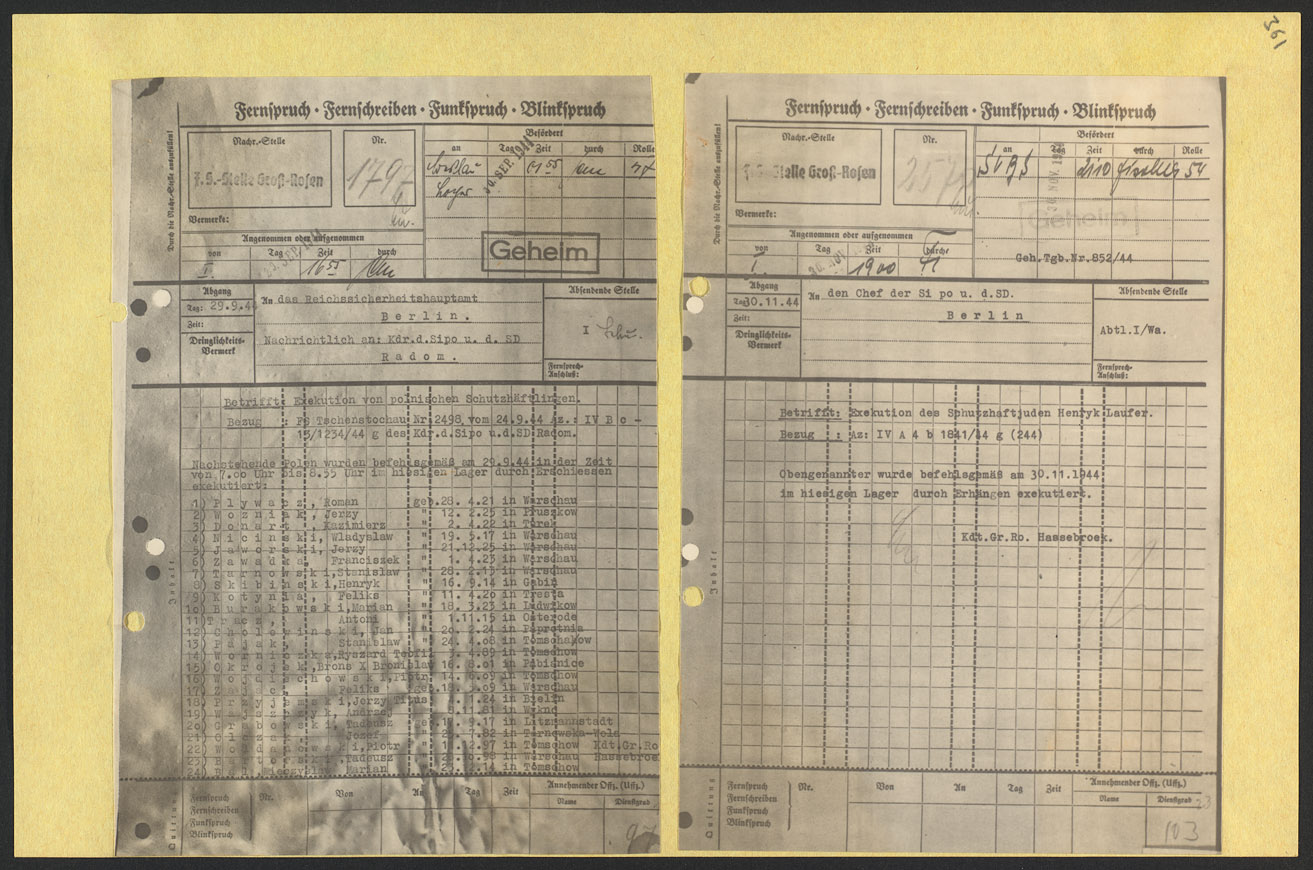 361
Fernspruch · Fernschreiben · Funkspruch · Blinkspruch
Durch die Nachr.-Stelle auszufüllen!
Nachr.-Stelle
F.S.-Stelle Groß-Rosen
Nr.
1797
Befördert
an Tag Zeit durch Rolle
30. SEP. 1944
01 55
Vermerke:
Angenommen oder aufgenommen
von Tag Zeit durch
I. 16 55
Geheim
Abgang
Tag: 29.9.44
Zeit:
Dringlichkeits-
Vermerk
An das Reichssicherheitshauptamt
Berlin.
Nachrichtlich an: Kdr.d.Sipo u. d. SD
Radom.
Absendende Stelle
I
Fernsprech-
Anschluß:
Betrifft: Exekution von polnischen Schutzhäftlingen.
Bezug : FS Tschenstochau Nr.2498 vom 24.9.44 Az.: IV B c -
15/1234/44 g des Kdr.d.Sipo u.d.SD Radom.
Nachstehende Polen wurden befehlsgemäß am 29.9.44 in der Zeit
von 7.oo Uhr bis 8.55 Uhr im hiesigen Lager durch Erschiessen
exekutiert:
1) Plywacz, Roman geb.28. 4.21 in Warschau
2) Wozniak, Jerzy " 12. 2.25 in Pruszkow
3) Donart , Kazimierz " 2. 4.22 in Turek
4) Nicinski, Wladyslaw " 19. 5.17 in Warschau
5) Jaworski, Jerzy " 21.12.25 in Warschau
6) Zawadka, Franciszek " 1. 4.23 in Warschau
7) Tarnowski,Stanislaw " 28. 2.13 in Warschau
8) Skibinski,Henryk " 16. 9.14 in Gabin
9) Kotynia, Feliks " 11. 4.20 in Tresta
10) Burakowski,Marian " 18. 3.23 in Ludwikow
11) Tracz, Antoni " 1.11.15 in Osterode
12) Cholewinski, Jan " 20. 2.24 in Paprotnia
13) Pajak, Stanislaw " 24. 4.08 in Tomschakow
14) Ryszard 3. 4.89 in Tomschow
15) Okrojek,Brons X Bronislaw 16. 8.01 in Pabianice
16) Wojciechowski,Piotr 14. 6.09 in Tomschow
17) Zajac, Feliks geb.19. 5.09 in Warschau
18) Przyjemski,Jerzy Titus 1.24 in Bielin
19) Andrzej 11.81 in
20) Grabowski, Tadeusz geb. 9.17 in Litzmannstadt
21) Josef 7.82 in Tarnowska-Wola
22) Piotr 12.97 in Tomschow Kdt.Gr.Ro
23) Tadeusz 98 in Warschau Hassebroe
24) Marian 2.14 in Tomschow
Inhalt
Quittung
Fernspruch
Fernschreiben
Funkspruch
Blinkspruch
Nr. Von An Tag Zeit
Annehmender Offz. (Uffz.)
Name Dienstgrad
97
Fernspruch · Fernschreiben · Funkspruch · Blinkspruch
Durch die Nachr.-Stelle auszufüllen!
Nachr.-Stelle
F.S.-Stelle Groß-Rosen
Nr.
257
Befördert
an Tag Zeit durch Rolle
2110 54
Vermerke:
Geheim
Angenommen oder aufgenommen
von Tag Zeit durch
I. 1900
Geh.Tgb.Nr.852/44
Abgang
Tag: 30.11.44
Zeit:
Dringlichkeits-
Vermerk
An den Chef der Si po u. d.SD.
Berlin
Absendende Stelle
Abtl.I/Wa.
Fernsprech-
Anschluß:
Betrifft: Exekution des Schutzhaftjuden Henryk Laufer.
Bezug : Az: IV A 4 b 1841/44 g (244)
Obengenannter wurde befehlsgemäß am 30.11.1944
im hiesigen Lager durch Erhängen exekutiert.
Kdt.Gr.Ro. Hassebroek.
Inhalt
Quittung
Fernspruch
Fernschreiben
Funkspruch
Blinkspruch
Nr. Von An Tag Zeit
Annehmender Offz. (Uffz.)
Name Dienstgrad
103